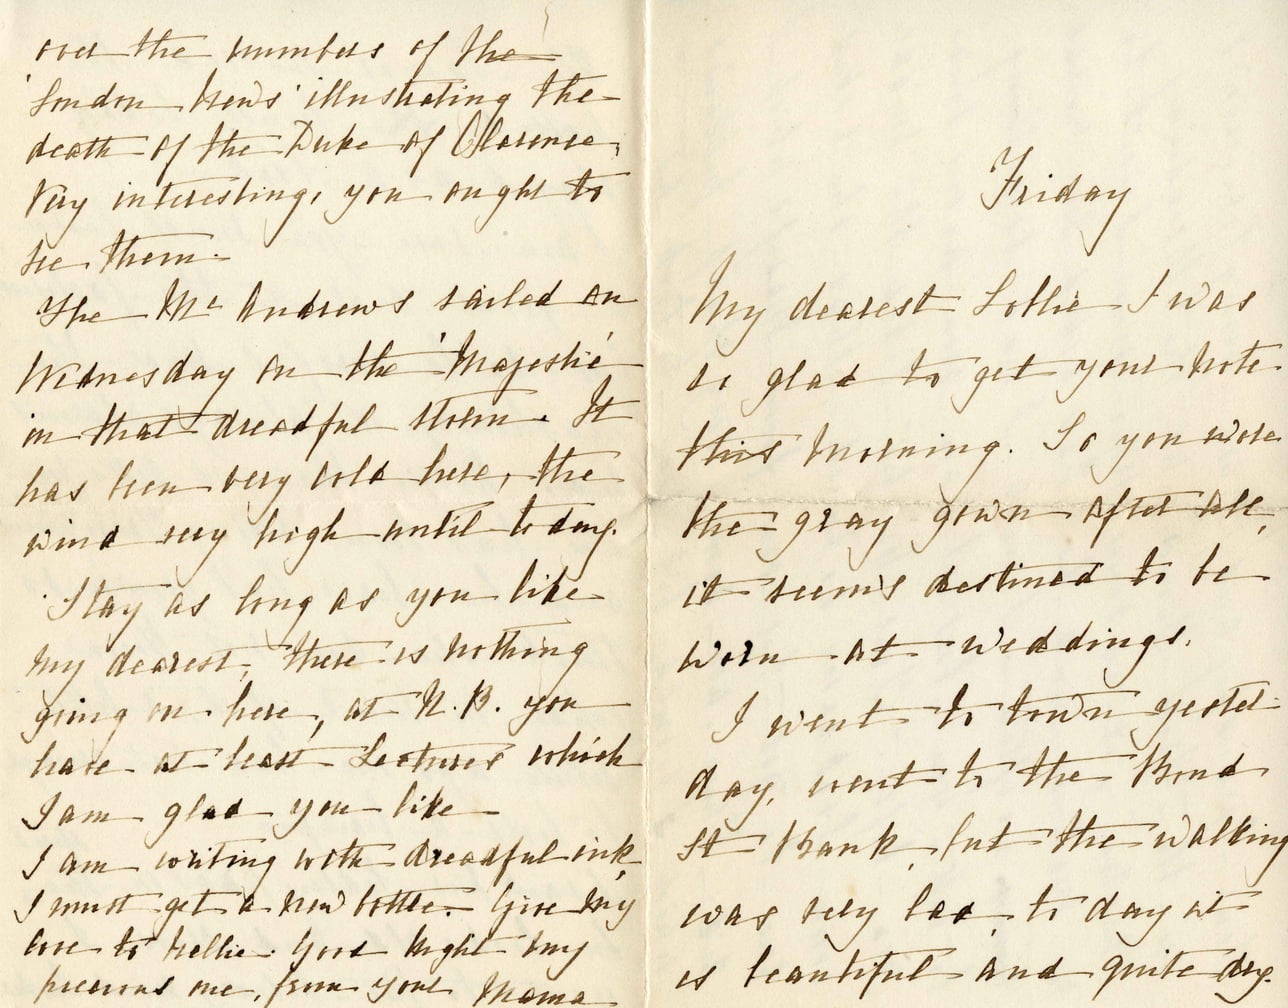 over the numbers of the
'London News' illustrating the
death of the Duke of Clarence,
very interesting, you ought to
see them.
The Mc Andrews sailed on
Wednesday on the 'Majestic'
in that dreadful storm. It
has been very cold here, the
wind very high until to day.
Stay as long as you like
my dearest, there is nothing
going on here, at N. B. you
have at least Lectures which
I am glad you like
I am writing with dreadful ink,
I must get a new bottle. Give my
love to Nellie. Good night my
precious one, from your Mama
Friday
My dearest Lottie I was
so glad to get your note
this morning. So you wore
the gray gown after all,
it seems destined to be
worn at weddings.
I went to town yester-
day, went to the Bond
St Bank, but the walking
was very bad, to day it
is beautiful and quite dry.